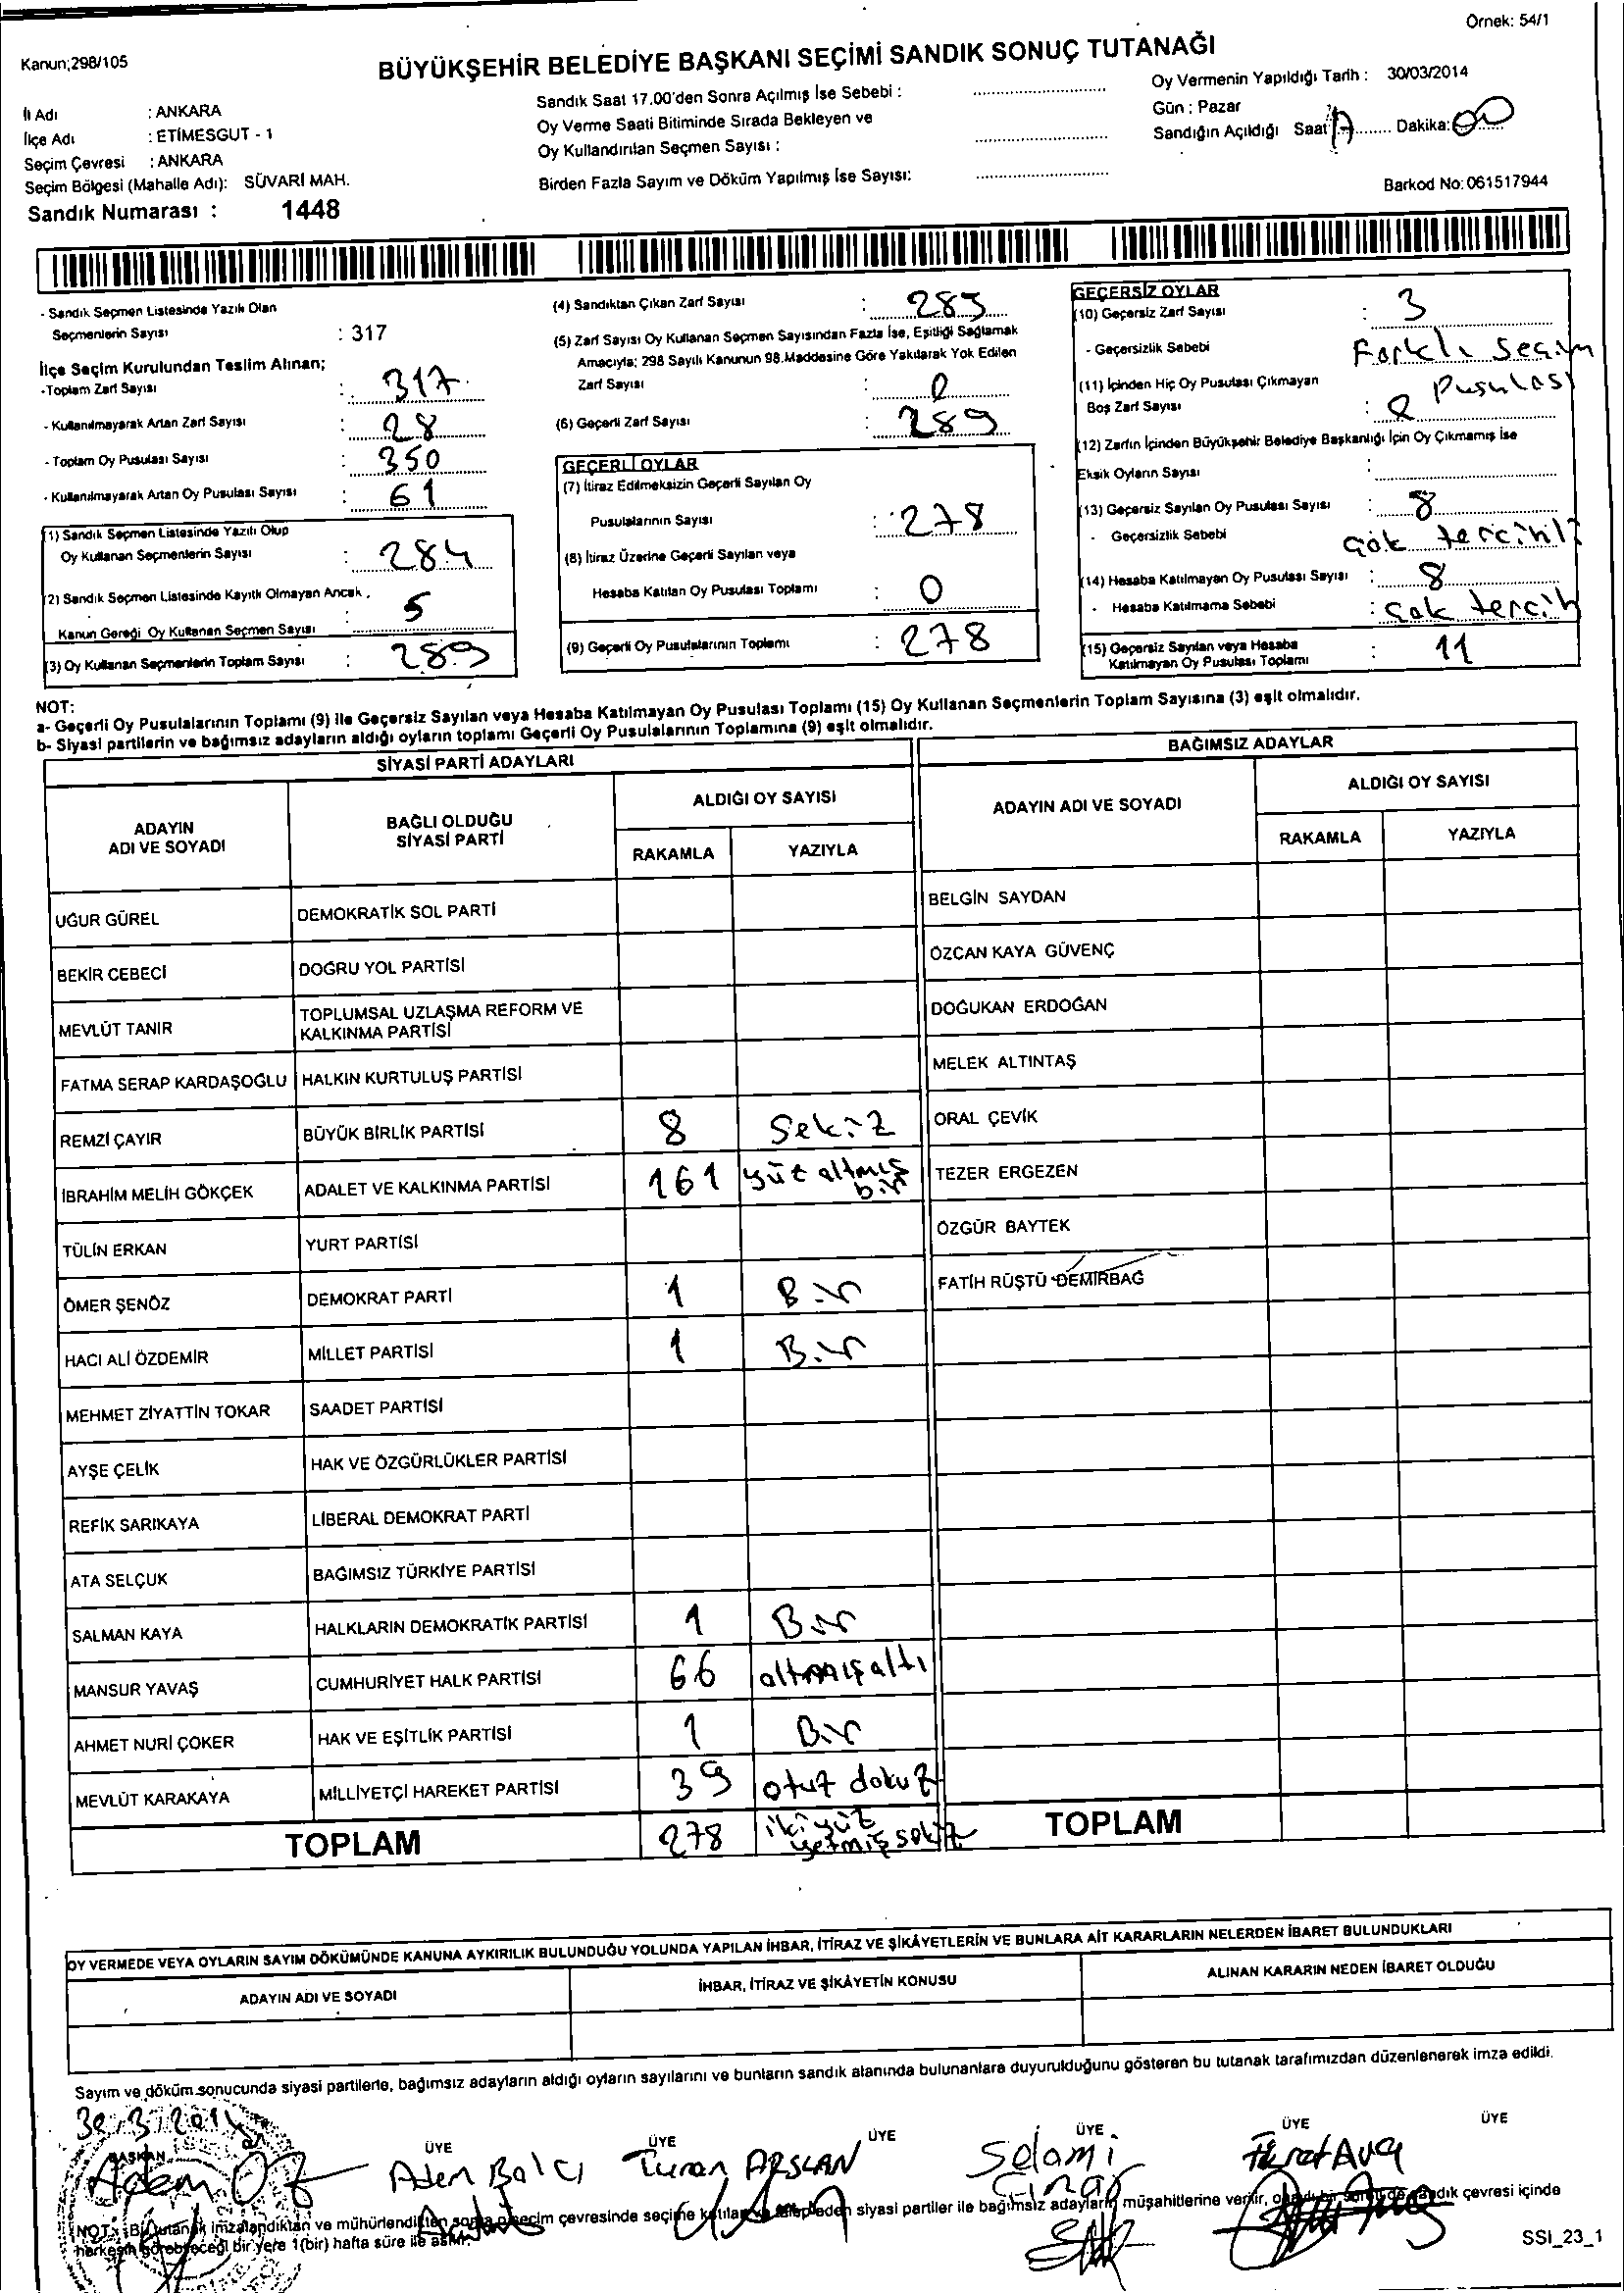 Örnek: 54/1
Kanun;298/105
BÜYÜKŞEHİR BELEDİYE BAŞKANI SEÇİMİ SANDIK SONUÇ TUTANAĞI
İl Adı : ANKARA
İlçe Adı : ETİMESGUT - 1
Seçim Çevresi : ANKARA
Seçim Bölgesi (Mahalle Adı): SÜVARİ MAH.
Sandık Numarası : 1448
Sandık Saat 17.00'den Sonra Açılmış İse Sebebi :
Oy Verme Saati Bitiminde Sırada Bekleyen ve
Oy Kullandırılan Seçmen Sayısı :
Birden Fazla Sayım ve Döküm Yapılmış İse Sayısı:
Oy Vermenin Yapıldığı Tarih : 30/03/2014
Gün : Pazar
Sandığın Açıldığı Saat Dakika: 00
Barkod No: 061517944
- Sandık Seçmen Listesinde Yazılı Olan
Seçmenlerin Sayısı : 317
İlçe Seçim Kurulundan Teslim Alınan;
-Toplam Zarf Sayısı : 317
- Kullanılmayarak Artan Zarf Sayısı : 28
- Toplam Oy Pusulası Sayısı : 350
- Kullanılmayarak Artan Oy Pusulası Sayısı : 61
(1) Sandık Seçmen Listesinde Yazılı Olup
Oy Kullanan Seçmenlerin Sayısı : 284
(2) Sandık Seçmen Listesinde Kayıtlı Olmayan Ancak
Kanun Gereği Oy Kullanan Seçmen Sayısı : 5
(3) Oy Kullanan Seçmenlerin Toplam Sayısı : 289
(4) Sandıktan Çıkan Zarf Sayısı : 289
(5) Zarf Sayısı Oy Kullanan Seçmen Sayısından Fazla İse, Eşitliği Sağlamak
Amacıyla; 298 Sayılı Kanunun 98.Maddesine Göre Yakılarak Yok Edilen
Zarf Sayısı : 0
(6) Geçerli Zarf Sayısı : 289
GEÇERLİ OYLAR
(7) İtiraz Edilmeksizin Geçerli Sayılan Oy
Pusulalarının Sayısı : 278
(8) İtiraz Üzerine Geçerli Sayılan veya
Hesaba Katılan Oy Pusulası Toplamı : 0
(9) Geçerli Oy Pusulalarının Toplamı : 278
GEÇERSİZ OYLAR
(10) Geçersiz Zarf Sayısı : 3
- Geçersizlik Sebebi Farklı seçim
pusulası
(11) İçinden Hiç Oy Pusulası Çıkmayan
Boş Zarf Sayısı : 0
(12) Zarfın İçinden Büyükşehir Belediye Başkanlığı İçin Oy Çıkmamış İse
Eksik Oyların Sayısı :
(13) Geçersiz Sayılan Oy Pusulası Sayısı : 8
- Geçersizlik Sebebi çok tercihli
(14) Hesaba Katılmayan Oy Pusulası Sayısı : 8
- Hesaba Katılmama Sebebi : çok tercih
(15) Geçersiz Sayılan veya Hesaba
Katılmayan Oy Pusulası Toplamı : 11
NOT:
a- Geçerli Oy Pusulalarının Toplamı (9) ile Geçersiz Sayılan veya Hesaba Katılmayan Oy Pusulası Toplamı (15) Oy Kullanan Seçmenlerin Toplam Sayısına (3) eşit olmalıdır.
b- Siyasi partilerin ve bağımsız adayların aldığı oyların toplamı Geçerli Oy Pusulalarının Toplamına (9) eşit olmalıdır.
SİYASİ PARTİ ADAYLARI
ADAYIN
ADI VE SOYADI
BAĞLI OLDUĞU
SİYASİ PARTİ
ALDIĞI OY SAYISI
RAKAMLA YAZIYLA
UĞUR GÜREL DEMOKRATİK SOL PARTİ
BEKİR CEBECİ DOĞRU YOL PARTİSİ
MEVLÜT TANIR TOPLUMSAL UZLAŞMA REFORM VE
KALKINMA PARTİSİ
FATMA SERAP KARDAŞOĞLU HALKIN KURTULUŞ PARTİSİ
REMZİ ÇAYIR BÜYÜK BİRLİK PARTİSİ 8 Sekiz
İBRAHİM MELİH GÖKÇEK ADALET VE KALKINMA PARTİSİ 161 yüz altmış
bir
TÜLİN ERKAN YURT PARTİSİ
ÖMER ŞENÖZ DEMOKRAT PARTİ 1 Bir
HACI ALİ ÖZDEMİR MİLLET PARTİSİ 1 Bir
MEHMET ZİYATTİN TOKAR SAADET PARTİSİ
AYŞE ÇELİK HAK VE ÖZGÜRLÜKLER PARTİSİ
REFİK SARIKAYA LİBERAL DEMOKRAT PARTİ
ATA SELÇUK BAĞIMSIZ TÜRKİYE PARTİSİ
SALMAN KAYA HALKLARIN DEMOKRATİK PARTİSİ 1 Bir
MANSUR YAVAŞ CUMHURİYET HALK PARTİSİ 66 altmışaltı
AHMET NURİ ÇOKER HAK VE EŞİTLİK PARTİSİ 1 Bir
MEVLÜT KARAKAYA MİLLİYETÇİ HAREKET PARTİSİ 39 otuz dokuz
TOPLAM 278 ikiyüz
yetmişsekiz
BAĞIMSIZ ADAYLAR
ADAYIN ADI VE SOYADI
ALDIĞI OY SAYISI
RAKAMLA YAZIYLA
BELGİN SAYDAN
ÖZCAN KAYA GÜVENÇ
DOĞUKAN ERDOĞAN
MELEK ALTINTAŞ
ORAL ÇEVİK
TEZER ERGEZEN
ÖZGÜR BAYTEK
FATİH RÜŞTÜ DEMİRBAĞ
TOPLAM
OY VERMEDE VEYA OYLARIN SAYIM DÖKÜMÜNDE KANUNA AYKIRILIK BULUNDUĞU YOLUNDA YAPILAN İHBAR, İTİRAZ VE ŞİKÂYETLERİN VE BUNLARA AİT KARARLARIN NELERDEN İBARET BULUNDUKLARI
ADAYIN ADI VE SOYADI İHBAR, İTİRAZ VE ŞİKÂYETİN KONUSU ALINAN KARARIN NEDEN İBARET OLDUĞU
Sayım ve döküm sonucunda siyasi partilerle, bağımsız adayların aldığı oyların sayılarını ve bunların sandık alanında bulunanlara duyurulduğunu gösteren bu tutanak tarafımızdan düzenlenerek imza edildi.
30/3/2014
BAŞKAN ÜYE ÜYE ÜYE ÜYE ÜYE ÜYE
Adem Öz Adem Balcı Turan ARSLAN Selami Çınar Fikret Avcı
NOT: Bu tutanak imzalandıktan ve mühürlendikten sonra o seçim çevresinde seçime katılan ve talep eden siyasi partiler ile bağımsız adayların müşahitlerine verilir, sandık çevresi içinde
herkesin görebileceği bir yere 1(bir) hafta süre ile asılır.
SSI_23_1